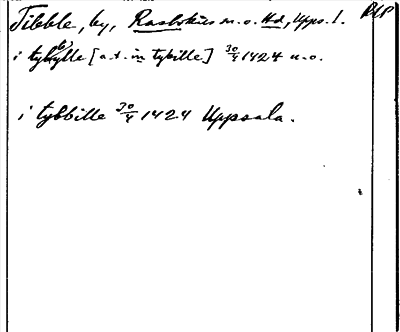 Tibble, by, Rasbokils m.o. Hd, Upps. l. RLP
i tybbylle [a.t. in tybille] 30/4 1424 u.o.
i tybbille 30/4 1424 Uppsala.